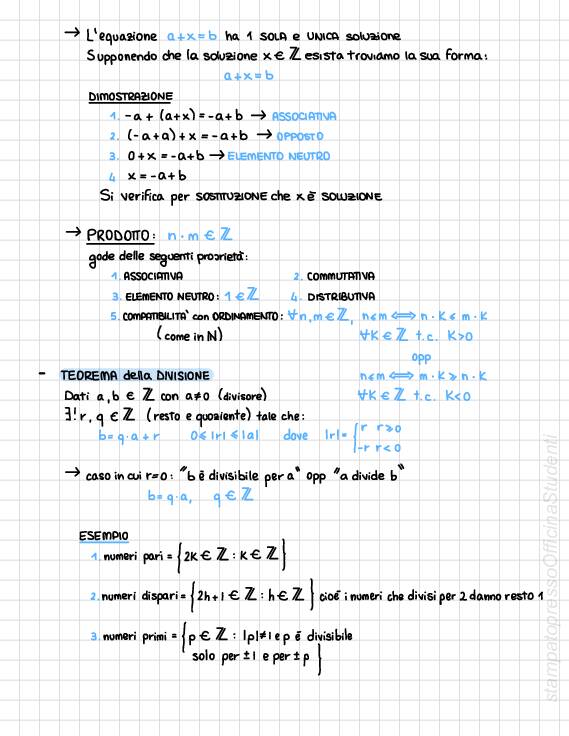 → L'equazione a+x=b ha 1 SOLA e UNICA soluzione
Supponendo che la soluzione x ∈ ℤ esista troviamo la sua forma:
a+x=b
DIMOSTRAZIONE
1. -a + (a+x) = -a+b → ASSOCIATIVA
2. (-a+a) + x = -a+b → OPPOSTO
3. 0+x = -a+b → ELEMENTO NEUTRO
4 x = -a+b
Si verifica per SOSTITUZIONE che x è SOLUZIONE
→ PRODOTTO: n·m ∈ ℤ
gode delle seguenti proprietà:
1. ASSOCIATIVA 2. COMMUTATIVA
3. ELEMENTO NEUTRO: 1 ∈ ℤ 4. DISTRIBUTIVA
5. COMPATIBILITA' con ORDINAMENTO: ∀n,m ∈ ℤ, n≤m ⟺ n·K ≤ m·K
(come in N) ∀K ∈ ℤ t.c. K>0
opp
- TEOREMA della DIVISIONE n≤m ⟺ m·K ≥ n·K
Dati a,b ∈ ℤ con a≠0 (divisore) ∀K ∈ ℤ t.c. K<0
∃! r, q ∈ ℤ (resto e quoziente) tale che:
b=q·a+r 0≤|r|≤|a| dove |r|= { r r≥0
-r r<0
→ caso in cui r=0: "b è divisibile per a" opp "a divide b"
b=q·a, q ∈ ℤ
ESEMPIO
1. numeri pari = {2K ∈ ℤ : K ∈ ℤ}
2. numeri dispari = {2h+1 ∈ ℤ : h ∈ ℤ} cioè i numeri che divisi per 2 danno resto 1
3. numeri primi = {p ∈ ℤ : |p|≠1 e p è divisibile
solo per ±1 e per ±p}
stampatopressoOfficinaStudenti